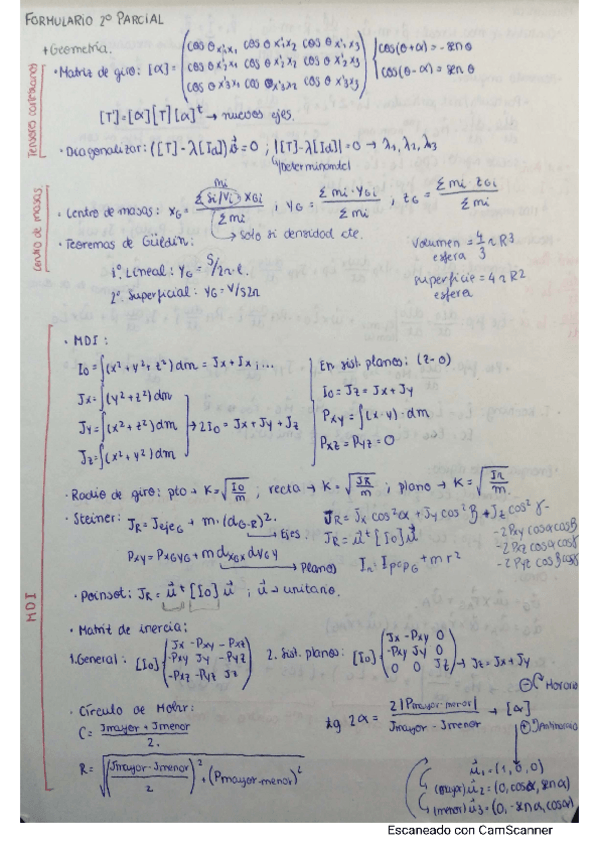 FORMULARIO 2º PARCIAL
+ Geometría.
Tensores cartesianos
· Matriz de giro: [α] = (cos θx'1x1 cos θx'1x2 cos θx'1x3
cos θx'2x1 cos θx'2x2 cos θx'2x3
cos θx'3x1 cos θx'3x2 cos θx'3x3)
cos(θ+α) = -senθ
cos(θ-α) = senθ
[T] = [α][T][α]ᵗ → nuevos ejes.
· Diagonalizar: ([T] - λ[Id]) v⃗ = 0 ; |[T] - λ[Id]| = 0 → λ1, λ2, λ3
Determinante
Centro de masas
mi
· Centro de masas: xG = Σ Si/Vi xGi / Σ mi ; yG = Σ mi·yGi / Σ mi ; zG = Σ mi·zGi / Σ mi
→ solo si densidad cte.
· Teoremas de Güldin:
1º Lineal: yG = S/2π·L
2º Superficial: yG = V/S2π
Volumen esfera = 4/3 π R3
superficie esfera = 4πR2
MDI
· MDI:
Io = ∫(x² + y² + z²) dm = Jx + Jx ; ...
Jx = ∫(y² + z²) dm
Jy = ∫(x² + z²) dm → 2Io = Jx + Jy + Jz
Jz = ∫(x² + y²) dm
En sist. planos: (z=0)
Io = Jz = Jx + Jy
Pxy = ∫(x·y)·dm
Pxz = Pyz = 0
· Radio de giro: pto → K = √(Io/m) ; recta → K = √(JR/m) ; plano → K = √(Iπ/m)
· Steiner: JR = Jeje G + m·(dG-R)².
Ejes.
Pxy = PxGyG + m dxGx dyGy
Planos
JR = Jx cos²α + Jy cos²β + Jz cos²γ -
- 2Pxy cosα cosβ
- 2Pxz cosα cosγ
- 2Pyz cosβ cosγ
JR = u⃗ᵗ [Io] u⃗
+ m r²
· Poinsot: JR = u⃗ᵗ [Io] u⃗ ; u⃗ → unitario.
· Matriz de inercia:
1. General: [Io] (Jx -Pxy -Pxz
-Pxy Jy -Pyz
-Pxz -Pyz Jz)
2. Sist. planos: [Io] (Jx -Pxy 0
-Pxy Jy 0
0 0 Jz) → Jz = Jx + Jy
· Círculo de Mohr:
C = Jmayor + Jmenor / 2.
R = √((Jmayor - Jmenor / 2)² + (Pmayor-menor)²)
tg 2α = 2|Pmayor-menor| / Jmayor - Jmenor → [α]
⊖ Horario
⊕ Antihorario
u⃗1 = (1, 0, 0)
(mayor) u⃗2 = (0, cosα, senα)
(menor) u⃗3 = (0, -senα, cosα)
Escaneado con CamScanner